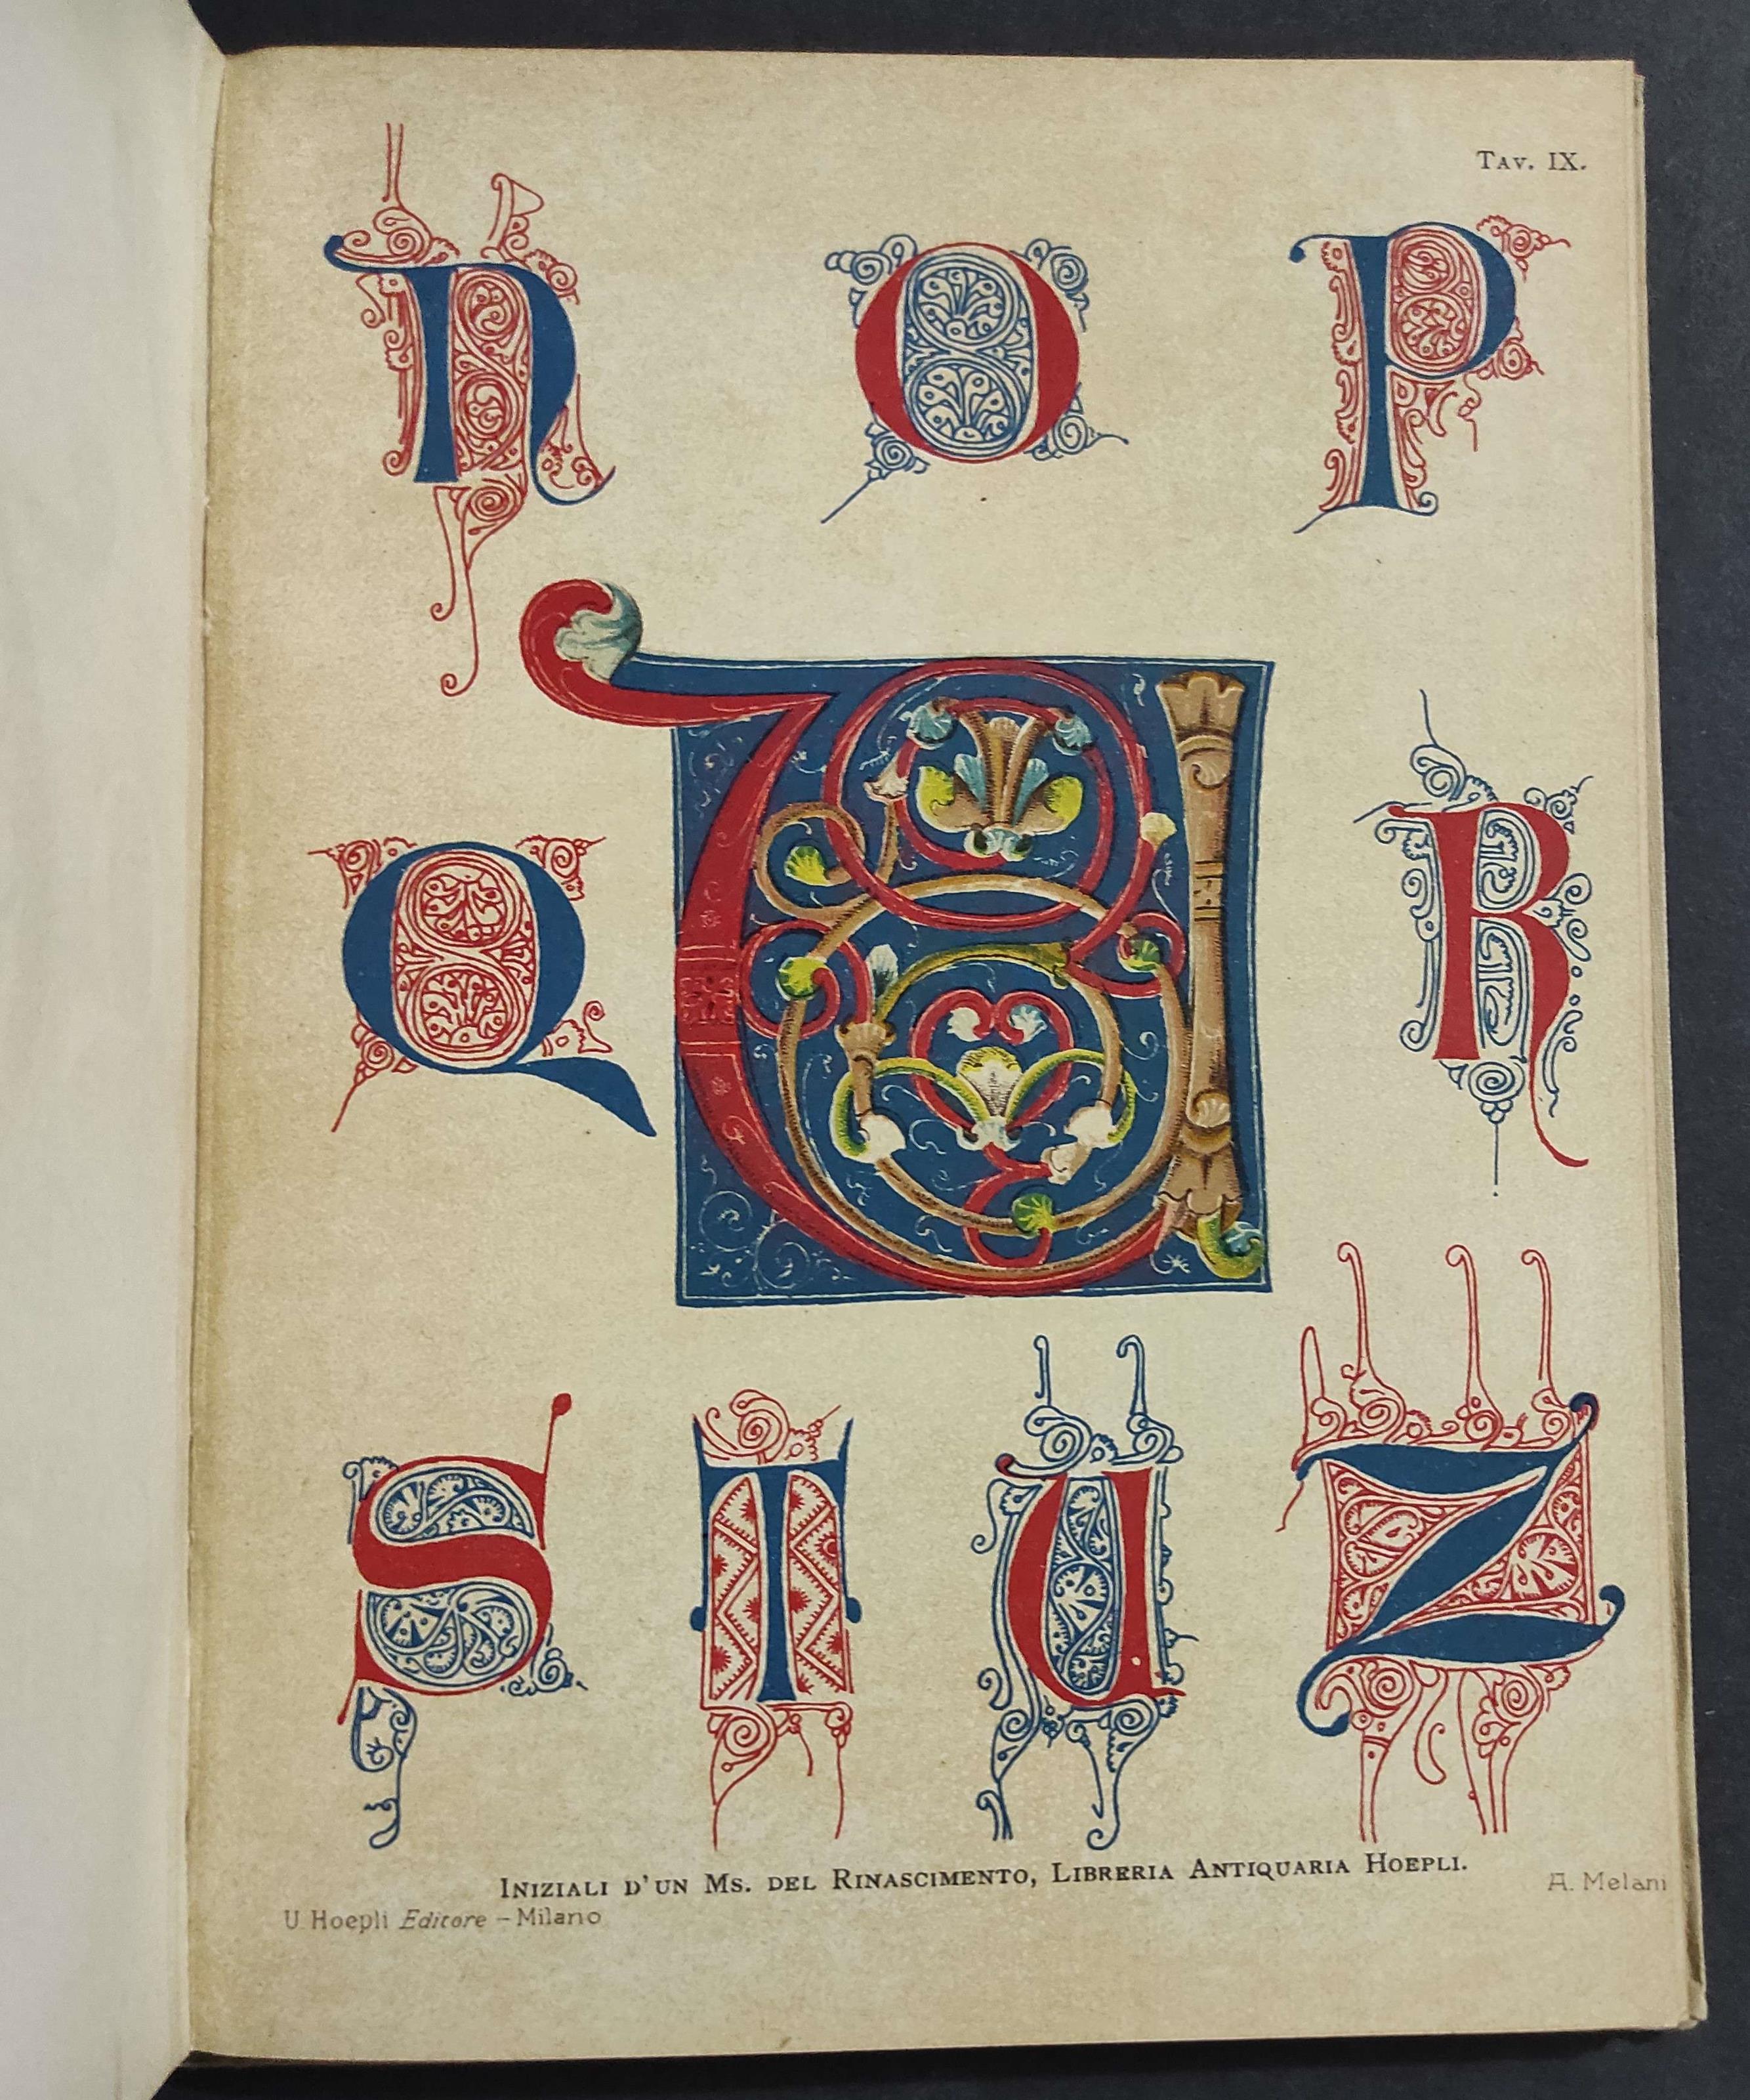 Tav. IX.
N O P
Q U R
S T U Z
Iniziali d'un Ms. del Rinascimento, Libreria Antiquaria Hoepli.
A. Melani
U. Hoepli Editore – Milano